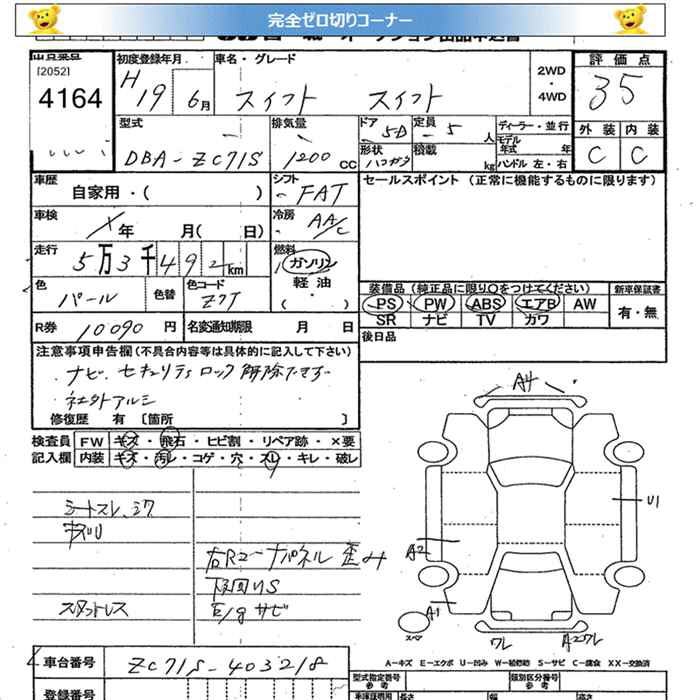 完全ゼロ切りコーナー
[2052]
4164
初度登録年月
H 19 6月
車名・グレード
スイフト スイフト
2WD
・
4WD
評価点
35
型式
DBA-ZC71S
排気量
1200 CC
ドア
5D
定員
5 人
形状
ハコガタ
積載
kg
ディーラー・並行
モデル年式 年
ハンドル 左・右
外装 内装
C C
車歴
自家用・( )
シフト
FAT
セールスポイント (正常に機能するものに限ります)
車検
X 年 月( 日)
冷房
AA/C
走行
5万3千492km
燃料
ガソリン
軽油
( ・ )
色
パール
色替
色コード
Z7T
装備品 (純正品に限り○をつけてください)
PS PW ABS エアB AW
SR ナビ TV カワ
新車保証書
有・無
R券 10090 円
名変通知期限 月 日
後日品
注意事項申告欄 (不具合内容等は具体的に記入して下さい)
ナビ、セキュリティロック解除できず
社外アルミ
修復歴 有 〔箇所 〕
検査員
記入欄
FW キズ・飛石・ヒビ割・リペア跡・×要
内装 キズ・汚レ・コゲ・穴・スレ・キレ・破レ
シートスレ、シワ
右Rコーナパネル 歪み
下回りS
E/gサビ
スタットレス
A4
U1
A2
A1
スペア
ワレ
A2ワレ
A-キズ E-エクボ U-凹み W-補修跡 S-サビ C-腐食 XX-交換済
車台番号
ZC71S-403218
登録番号
型式指定番号
参考
類別区分番号
参考
長さ 幅 高さ